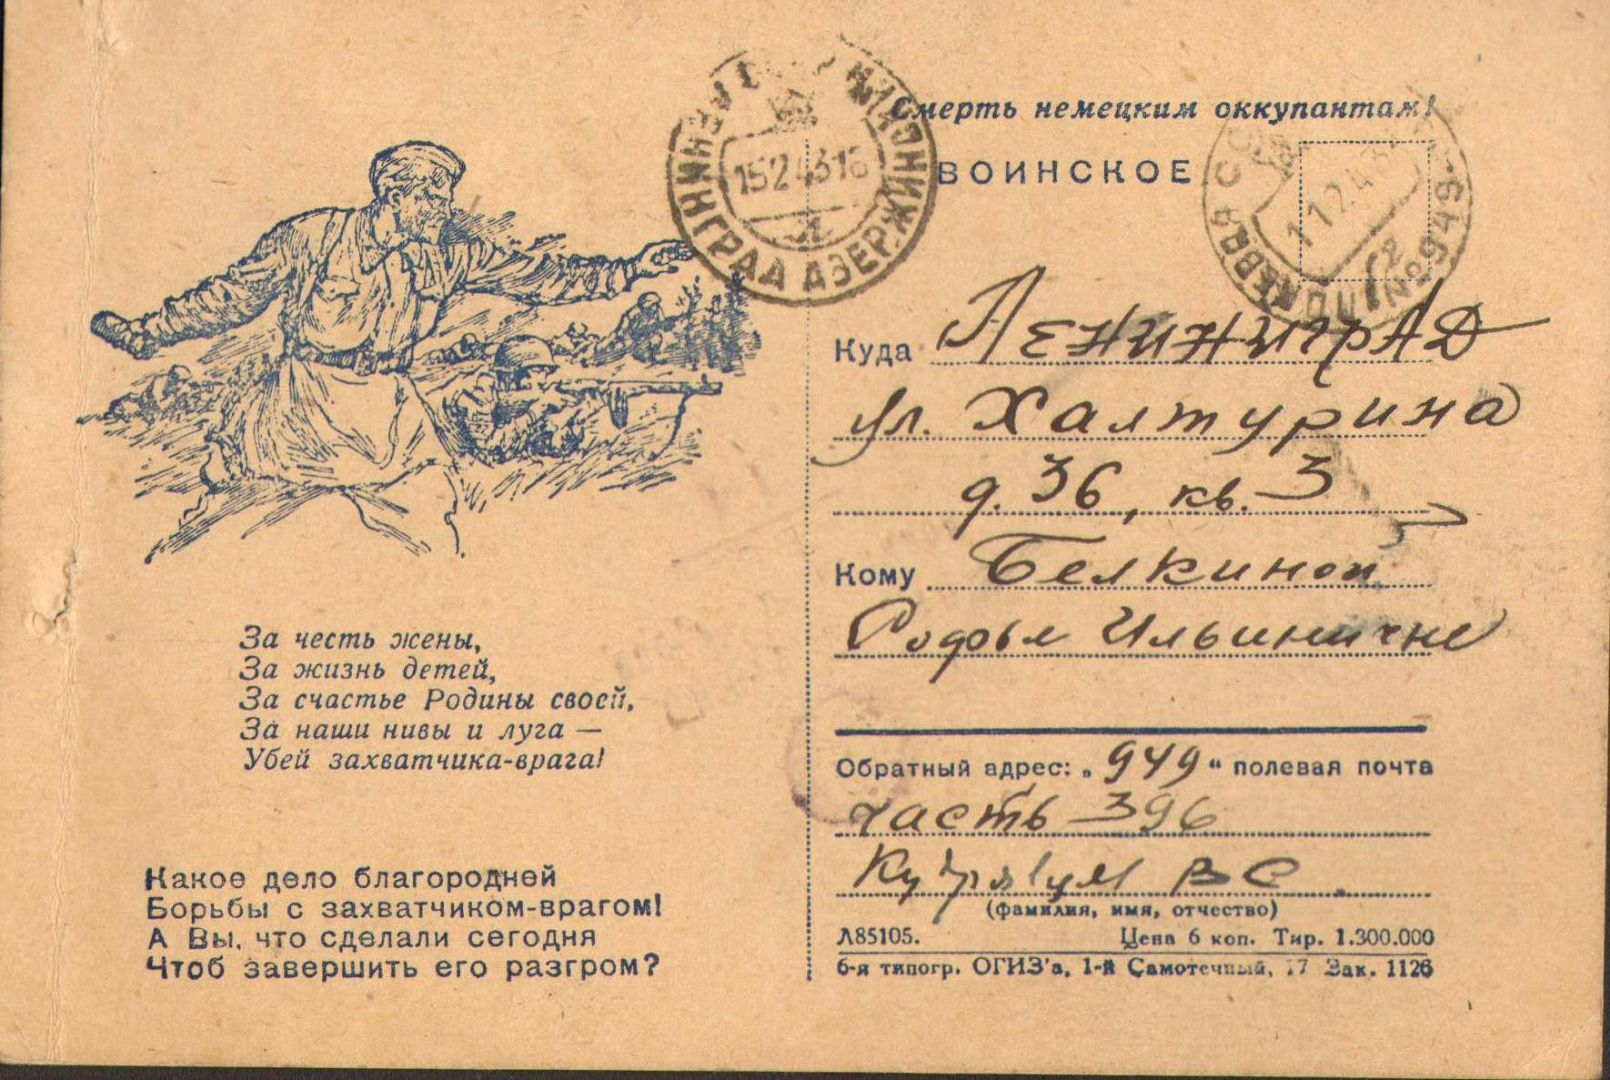 За честь жены,
За жизнь детей,
За счастье Родины своей,
За наши нивы и луга —
Убей захватчика-врага!
Какое дело благородней
Борьбы с захватчиком-врагом!
А Вы, что сделали сегодня
Чтоб завершить его разгром?
ЛЕНИНГРАД ДЗЕРЖИНСКИЙ
1524318
Смерть немецким оккупантам!
ВОИНСКОЕ
№ 949
11243
Куда ЛЕНИНГРАД
ул. Халтурина
д. 36, кв. 3
Кому Белкиной
Софье Ильиничне
Обратный адрес: „949“ полевая почта
часть 396
ВС
(фамилия, имя, отчество)
Л85105. Цена 6 коп. Тир. 1.300.000
6-я типогр. ОГИЗ'а, 1-й Самотечный, 17 Зак. 1126